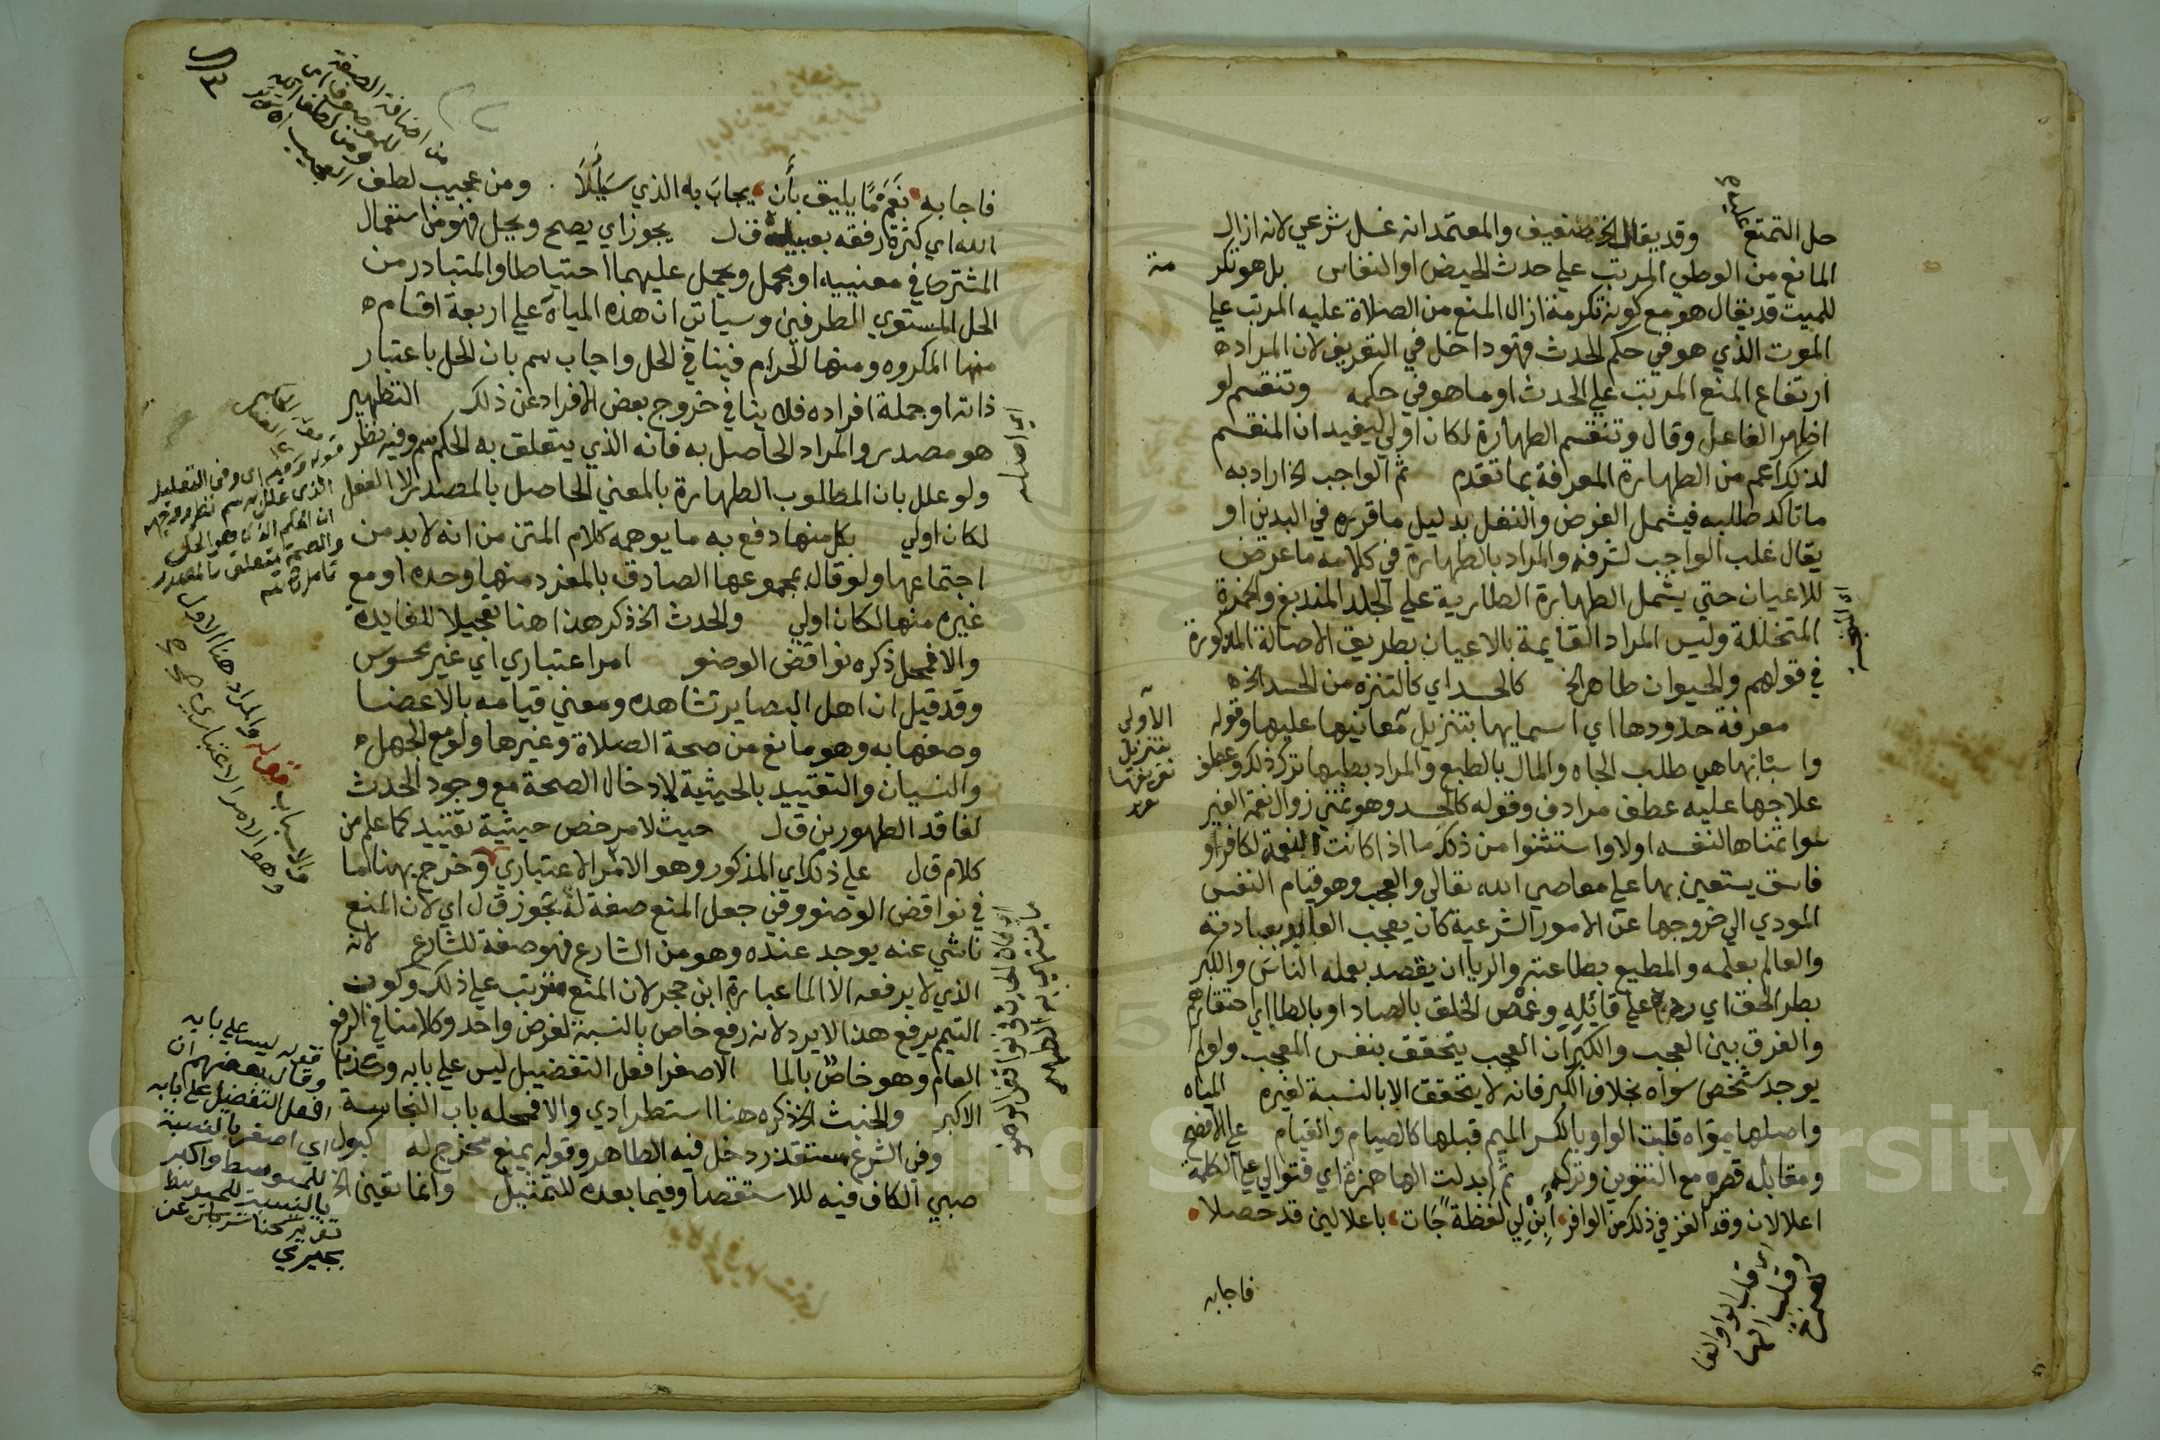 حل التمتع وقد يقال الخ ضعيف والمعتمد انه غسل شرعي لانه ازال
المانع من الوطي المرتب علي حدث الحيض او النفاس بل هو تكر
مة
للميت قد يقال هو مع كونه تكرمة ازال المنع من الصلاة عليه المرتب علي
الموت الذي هو في حكم الحدث فهو داخل في التعريف لان المراد ه
ارتفاع المنع المرتب علي الحدث او ما هو في حكمه وتنقسم لو
اظهر الفاعل وقال وتنقسم الطهارة لكان اولي ليفيد ان المنقسم
لذلك اعم من الطهارة المعرفة بما تقدم ثم الواجب الخ اراد به
ما تاكد طلبه فيشمل الفرض والنفل بدليل ما قرره في البدين او
يقال غلب الواجب لشرفه والمراد بالطهارة في كلامه ما عرض
للاعيان حتي يشمل الطهارة الطارية علي الجلد المندبغ والخمرة
المتخللة وليس المراد القايمة بالاعيان بطريق الاصالة المذكورة
في قولهم والحيوان طاهر الخ كالحسد اي كالتنزه من الحسد الخ ه
معرفة حدودها اي اسمايها بتنزيل معانيها عليها وقوله
الاولي
بتنزيل
تعريفها
واسبابها هي طلب الجاه والمال بالطبع والمراد بطبها ترك ذلك وعطف
علاجها عليه عطف مرادف وقوله كالحسد وهو تمني زوال نعمة الغير
سوا تمناها لنفسه اولا واستثنوا من ذلك ما اذا كانت النعمة لكافر او
فاسق يستعين بها علي معاصي الله تعالي والعجب وهو قيام النفس
المودي الي خروجها عن الامور الشرعية كان يعجب العابد بعبادته
والعالم بعلمه والمطيع بطاعته والريا ان يقصد بعمله الناس والكبر
بطر الحق اي رده علي قائله وغمص الخلق بالصاد او بالطا اي احتقارهم
والفرق بين العجب والكبر ان العجب يتحقق بنفس المعجب ولو لم
يوجد شخص سواه بخلاف الكبر فانه لا يتحقق الا بالنسبة لغيره المياه
واصلها مواه قلبت الواو يا لكسر الميم قبلها كالصيام والقيام علي الافصح
ومقابله قصره مع التنوين وتركه ثم ابدلت الها همزة اي فتوالي علي الكلمة
اعلالان وقد الغز في ذلك من الوافر ابن لي لفظة جات باعلالين قد حصلا
اي قلب الواو الفا
وقلب الها
همزة
فاجابه
فاجابه نعم ما يليق بان يجاب به الذي سيلا ومن عجيب لطف
الله اي كثرة رفقه بعبيله قال يجوز اي يصح ويحل فهو من استعمال
المشترك في معنييه او مجمل ويحمل عليهما احتياطا والمتبادر من
الحل المستوي الطرفين وسياتي ان هذه المياه علي اربعة اقسام ه
منها المكروه ومنها الحرام فينافي الحل واجاب سم بان الحل باعتبار
ذاته او جملة افراده فلا ينافي خروج بعض الافراد عن ذلك التطهير
هو مصدر والمراد الحاصل به فانه الذي يتعلق به الحكم سم وفيه نظر
ولو علل بان المطلوب الطهارة بالمعني الحاصل بالمصدر لا الفعل
لكان اولي بكل منها دفع به ما يوهمه كلام المتن من انه لا بد من
اجتماعها ولو قال بمجموعها الصادق بالمفرد منها وحده او مع
غيره منها لكان اولي والحدث الخ ذكر هذا هنا تعجيلا للفايدة
والا فمحل ذكره نواقض الوضو امر اعتباري اي غير محسوس
وقد قيل ان اهل البصاير تشاهده ومعني قيامه بالاعضا
وصفها به وهو مانع من صحة الصلاة وغيرها ولو مع الجهل ه
والنسيان والتقييد بالحيثية لادخال الصحة مع وجود الحدث
لفاقد الطهورين قال حيث لا مرخص حيثية تقييد كما علم من
كلام قال علي ذلك اي المذكور وهو الامر الاعتباري وخرج بهنا اما
في نواقض الوضو وفي جعل المنع صفة له تجوز قال اي لان المنع
ناشي عنه يوجد عنده وهو من الشارع فهو صفة للشارع لانه
الذي لا يرفعه الا الما عبارة ابن حجر لان المنع مترتب علي ذلك وكون
التيمم يرفع هذا لا يرد لانه رفع خاص بالنسبة لفرض واحد وكلامنا في الرفع
العام وهو خاص بالما الاصغر افعل التفضيل ليس علي بابه وكذا
الاكبر والخبث الخ ذكره هنا استطرادي والا فمحله باب النجاسة
وفي الشرع مستقذر دخل فيه الطاهر وقوله يمنع مخرج له كبول
صبي الكاف فيه للاستقصا وفيما بعده للتمثيل وانما تعين الخ
من اضافة الصفة
للموصوف اي
ومن لطف الله
العجيب
قوله وفيه نظر اي وفي التعليل
الذي علل به سم نظر ووجهه
ان الحكم الذي هو الحل
والصحة متعلق بالمصدر
والمراد هنا الاول
وهو الامر الاعتباري
قوله ليس علي بابه
وقال بعضهم ان
افعل التفضيل علي بابه
اي اصغر بالنسبة
للمتوسط واكبر
بالنسبة للمتوسط
بجيرمي